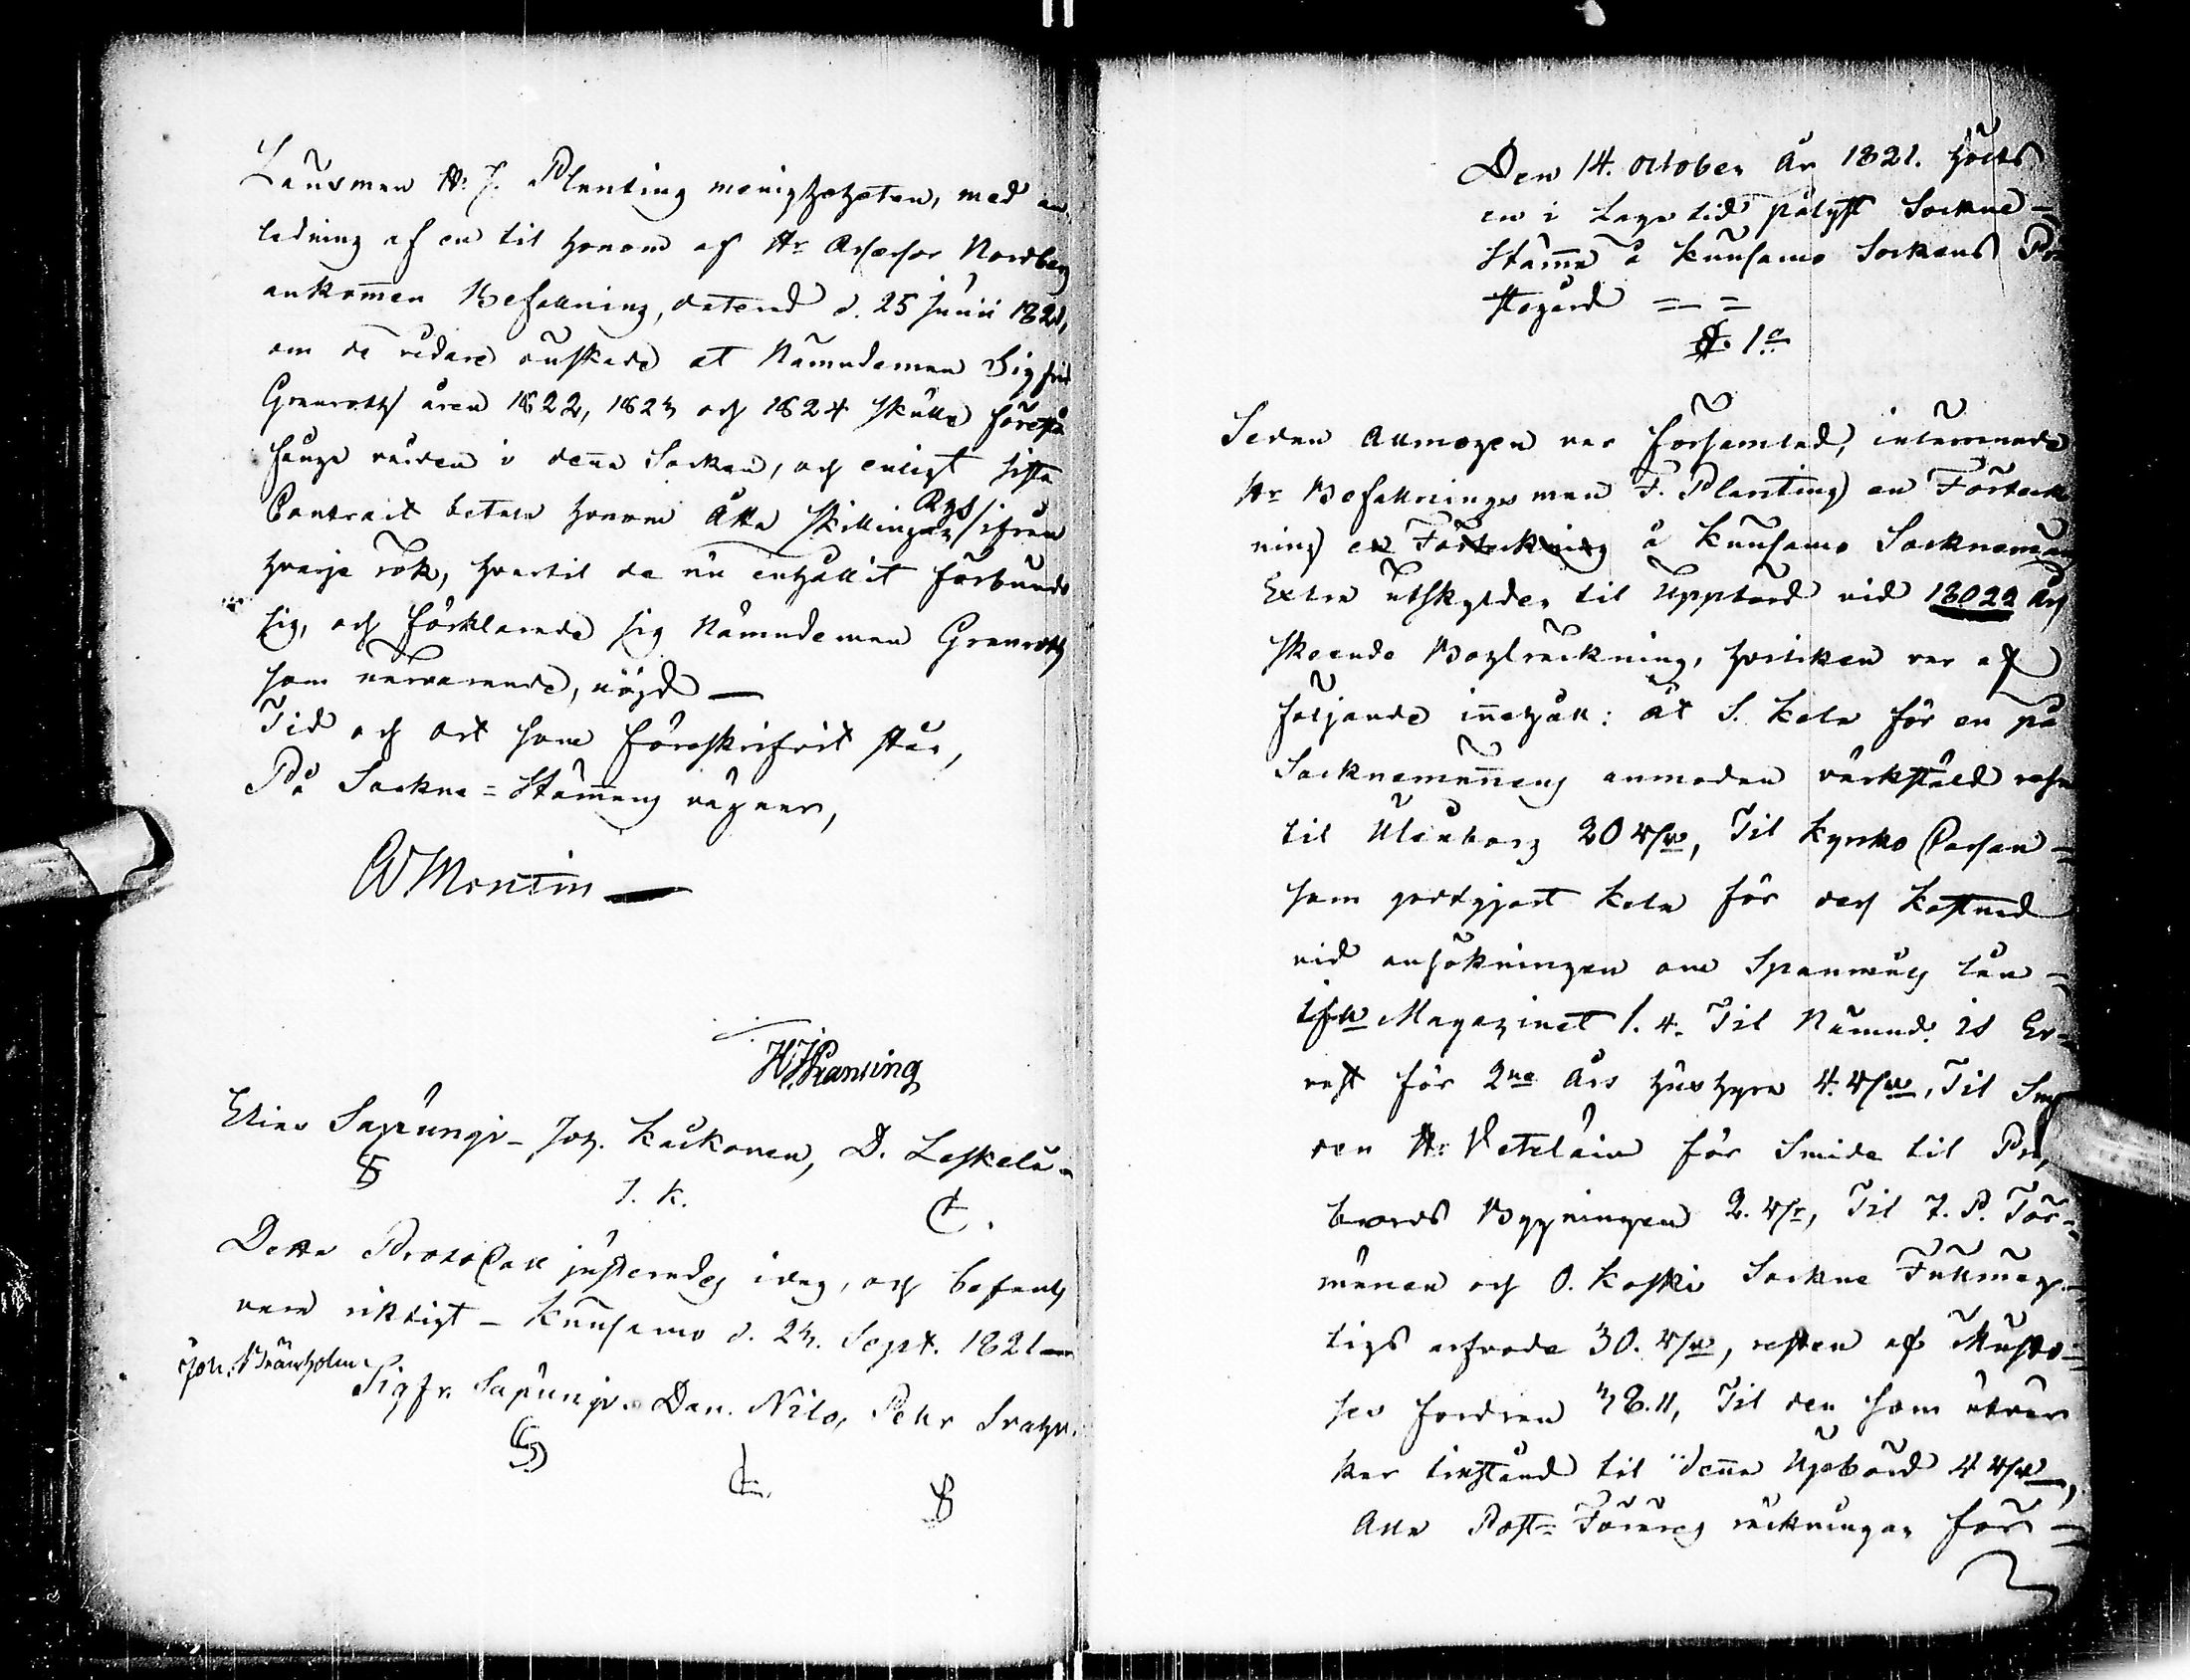 Länsman H: J. Planting menigheheten, med an-
ledning af en til honom af Hr Assessor Nordberg
ankommen Befallning, daterad d. 25 Junii 1821,
om de vidare önskade at Nämndeman Sigfrid
Granroth åren 1822, 1823 och 1824 skulle förestå
fånge vården i denna Socken, och enligt sista
Contract betala honom Åtta skillingar Rgs ifrån
hvarje rök, hvartil de nu enhällit förbundo
sig, och förklarade sig Nämndeman Granroth
som närvarande, nögd —
Tid och Ort som föreskrifvit står,
På Sockne=Stämmans vägnar,
CWMontin
HJPlanting
Elias Säpungi – Joh. Kaikonen, D. Leskelä –
J. K.
Detta Protocoll justerades idag, och befants
vara riktigt – Kuusamo d. 23. Sept. 1821 –
Joh: Wränholm
Sigfr. Säpungi. Dan. Nilo, Pehr
Den 14. October År 1821. hölts
en i laga tid pålyst Sockne-
Stämma å Kuusamo Sockens Pre-
stegård = =
§. 1o
Sedan Allmogen var församlad, inlemnade
Hr Befallningsman F. Planting en Förteck
ning en Förteckning å Kuusamo Socknemäns
Extra utskylder til Uppbörd vid 13022 års
skeende Boglräckning, hvilken var af
följande innehåll: Åt S. Kela för en på
Socknemännens anmodan värkstäld resa
til Uleåborg 20 Rs, Til Kyrko Cassan –
som godtgjort Kela för dess kostnad
vid ansökningen om Spanmåls lån –
ifrån Magazinet 1. 4. Til Nämnd. Is Er-
rast för 2ne års hus hyra 4. Rs, Til Sme
den H: Veteläin för Smide til Prä
bords Byggningen 2. Rs, Til J. P. Tör-
mänen och O. Koski Sockne Fullmäg-
tigs arfvode 30. Rs, resten af Musto-
sen fordran 38.11, Til den som utvär
kar tilstånd til denna Upbörd 4 Rs,
Alla Post=Förares räkningar för –